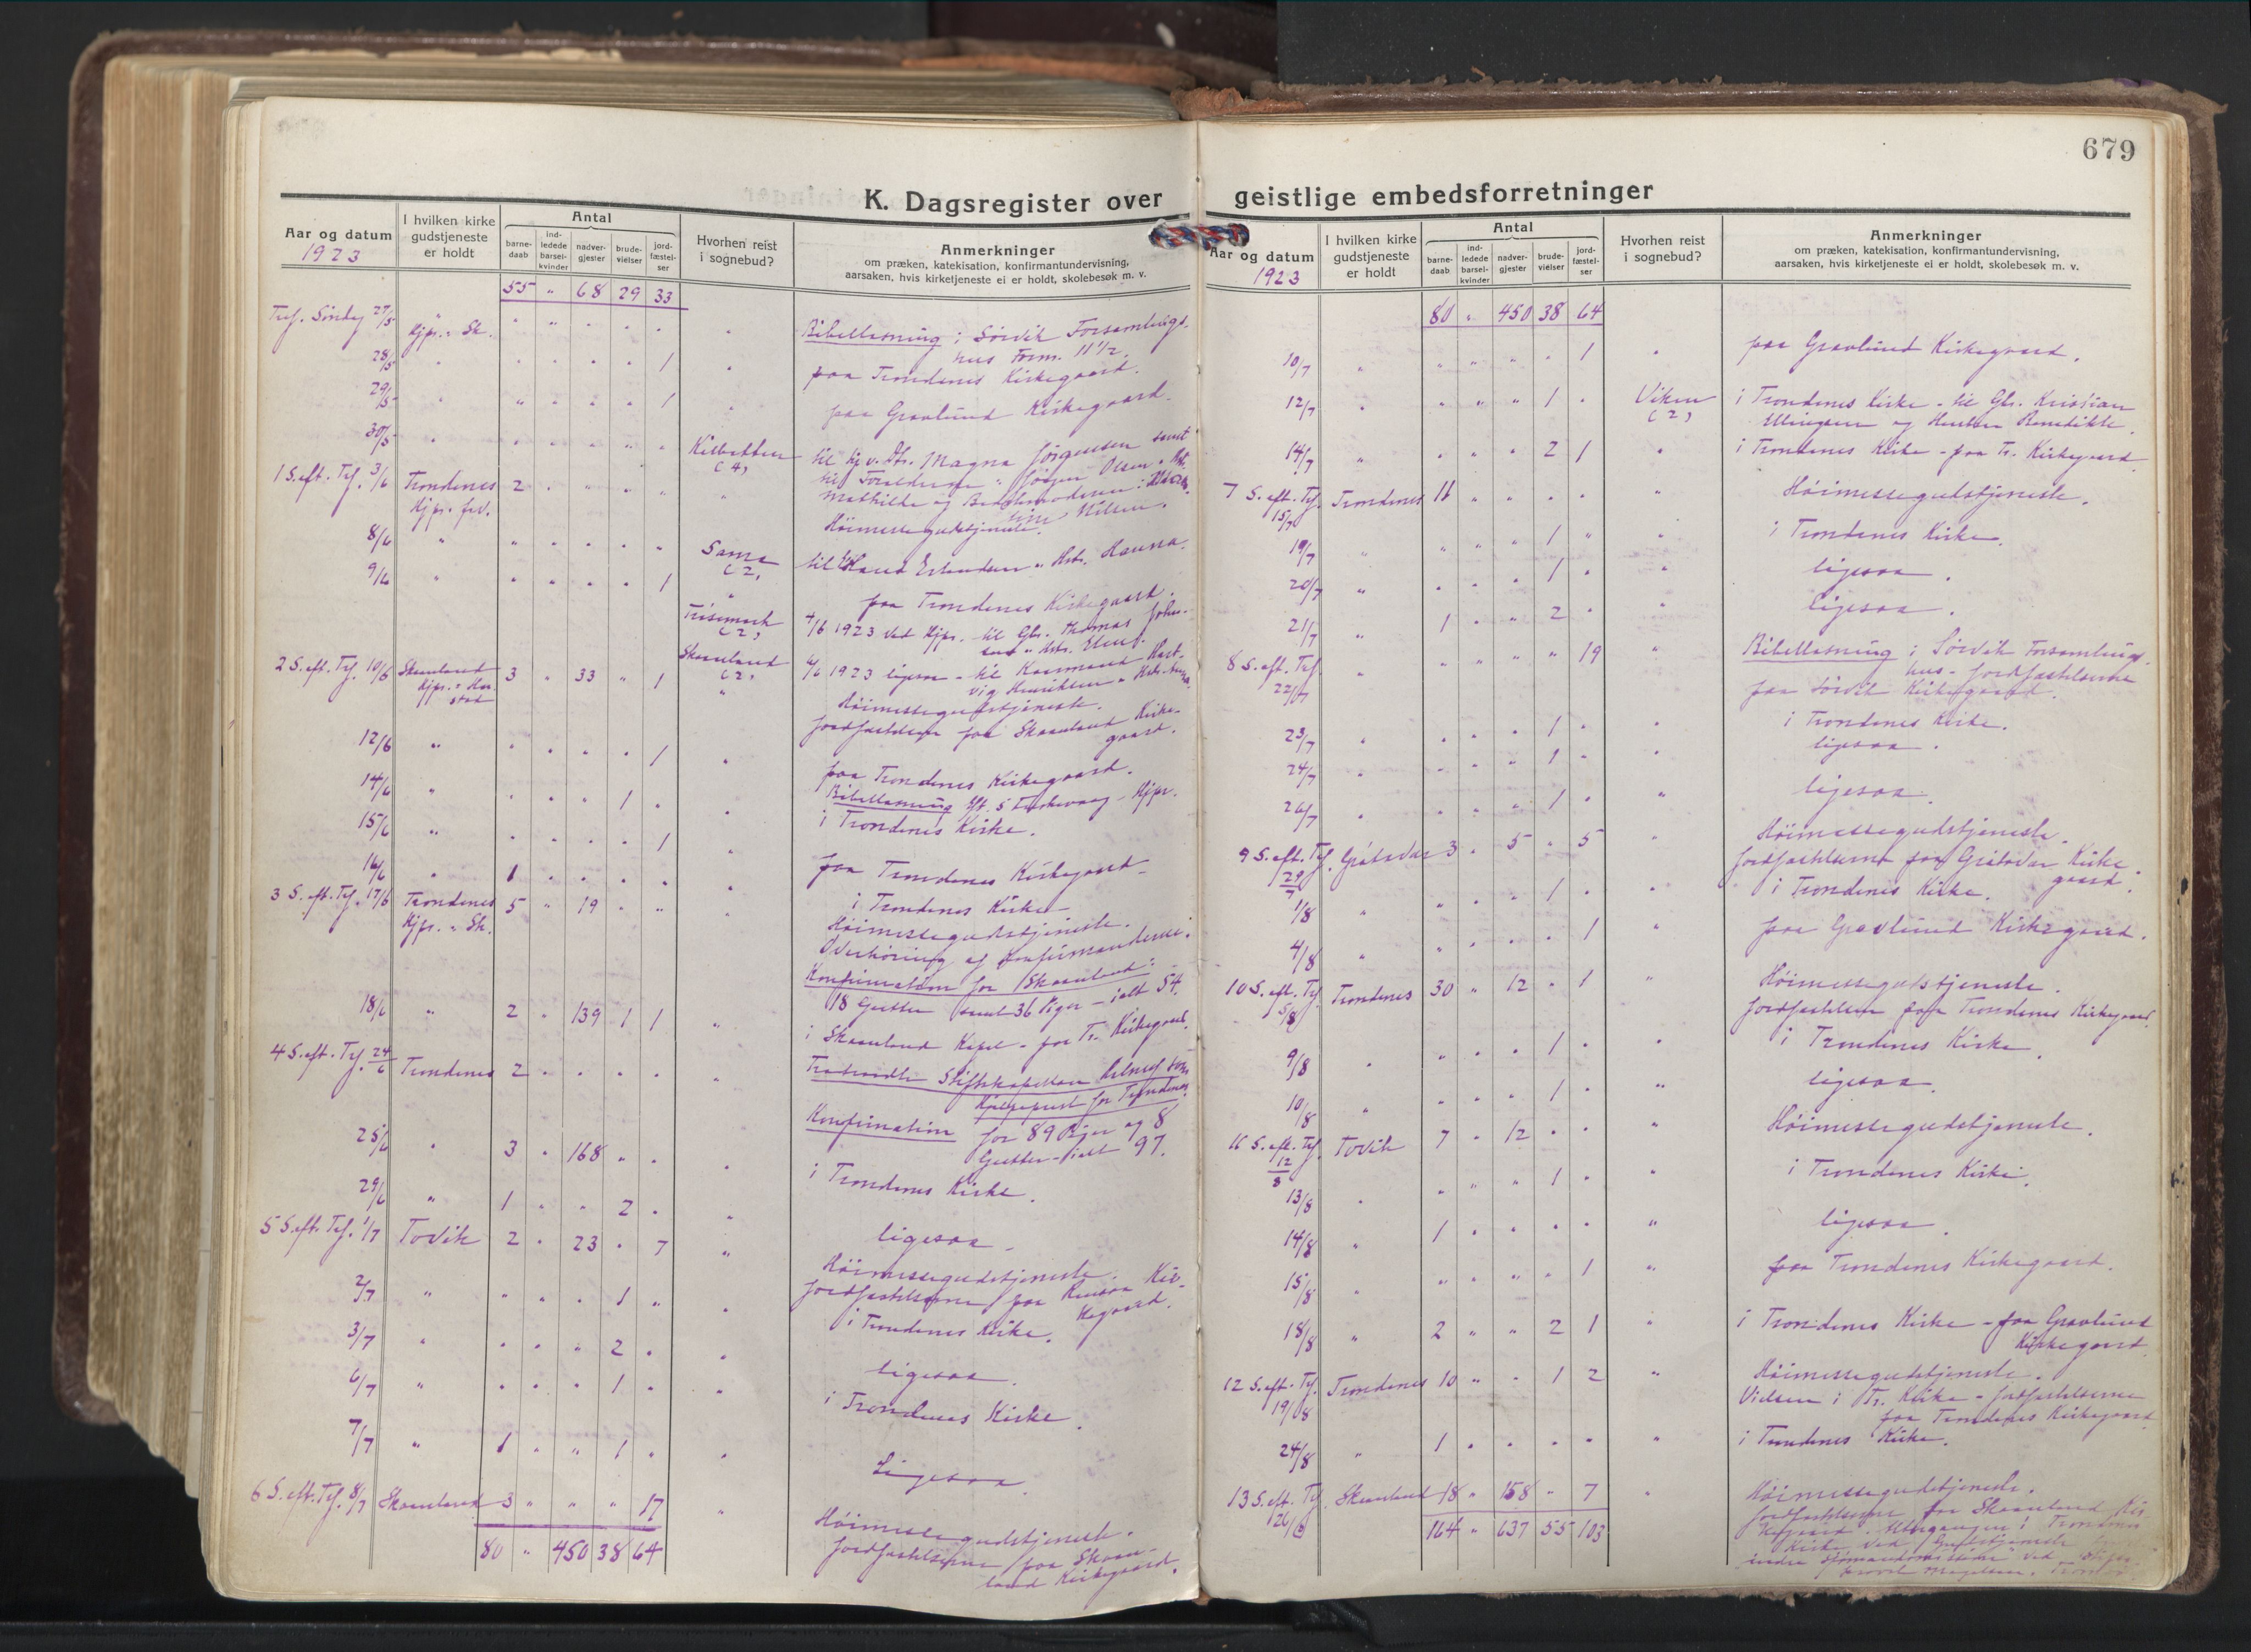 679
K. Dagsregister over
Aar og datum
1923
I hvilken kirke
gudstjeneste
er holdt
Antal
barne-
daab
ind-
ledede
barsel-
kvinder
nadver-
gjester
brude-
vielser
jord-
fæstel-
ser
Hvorhen reist
i sognebud?
Anmerkninger
om præken, katekisation, konfirmantundervisning,
aarsaken, hvis kirketjeneste ei er holdt, skolebesøk m. v.
55 " 68 29 33
Tref. Søndag 27/5 Hjpr. " Sk. " " " " " " Bibellæsning i Sørvik Forsamlings-
hus Form. 11 1/2.
28/5 " " " " " 1 " paa Trondenes Kirkegaard.
29/5 " " " " " 1 " paa Gravlund Kirkegaard.
30/5 " " " " " " Kilbotten (4) til Magna Jørgensen samt
til Forældrene Jørgen Olsen
Mathilde og Nilsen.
1 S. eft. Tref. 3/6 Trondenes 2 " " " " " Høimessegudstjeneste.
8/6 " " " " " " Sama (2) til Erlandsen " Hanna.
9/6 " " " " " 1 " paa Trondenes Kirkegaard.
(2) 4/6 1923 ved Hjpr. til Gbr. Thomas John-
Skaanland (2) 6/6 1923 ligesaa - til Hart-
vig Henriksen
2 S. eft. Tref. 10/6 Skaanland 3 " 33 " 1 " Høimessegudstjeneste.
Hjpr. " Har-
stad
Jordfæstelsen paa Skaanland Kirke-
gaard.
12/6 " " " " " 1 " paa Trondenes Kirkegaard.
Bibellæsning Hjpr.
14/6 " " " " 1 " " i Trondenes Kirke.
15/6 " " " " " 1 " paa Trondenes Kirkegaard
16/6 " 1 " " " " " i Trondenes Kirke
3 S. eft. Tref. 17/6 Trondenes 5 " 19 " " " Høimessegudstjeneste.
Hjpr. " Sk.
Overhøring af Konfirmanderne.
Konfirmation for Skaanland:
18 Gutter samt 36 Piger - ialt 54.
18/6 " 2 " 139 1 1 " i Skaanland Kapel - paa Tr. Kirkegaard.
4 S. eft. Tref. 24/6 Trondenes 2 " " " " " Stiftskapellan som
Hjælpeprest for Trondenes.
Konfirmation for 89 Piger og 8
Gutter - ialt 97.
25/6 " 3 " 168 " " " i Trondenes Kirke.
29/6 " 1 " " 2 " " ligesaa
5 S. eft. Tref. 1/7 Tovik 2 " 23 " 7 " Høimessegudstjeneste.
Jordfæstelserne paa Kir-
kegaard.
2/7 " " " " 1 " " i Trondenes Kirke.
3/7 " " " " 2 " " ligesaa.
6/7 " " " " 1 " " i Trondenes Kirke.
7/7 " 1 " " 1 " " Ligesaa.
6 S. eft. Tref. 8/7 Skaanland 3 " " " 17 " Høimessegudstjeneste.
Jordfæstelserne paa Skaan-
land Kirkegaard.
80 " 450 38 64
geistlige embedsforretninger
Aar og datum
1923
I hvilken kirke
gudstjeneste
er holdt
Antal
barne-
daab
ind-
ledede
barsel-
kvinder
nadver-
gjester
brude-
vielser
jord-
fæstel-
ser
Hvorhen reist
i sognebud?
Anmerkninger
om præken, katekisation, konfirmantundervisning,
aarsaken, hvis kirketjeneste ei er holdt, skolebesøk m. v.
80 " 450 38 64
10/7 " " " " " 1 " paa Gravlund Kirkegaard.
12/7 " " " " 1 " Viken (2) i Trondenes Kirke - til Gbr. Kristian
og Benedikte.
14/7 " " " " 2 1 " i Trondenes Kirke - paa Tr. Kirkegaard
7 S. eft. Tref. 15/7 Trondenes 11 " " " " " Høimessegudstjeneste.
19/7 " " " " 1 " " i Trondenes Kirke.
20/7 " " " " 1 " " ligesaa.
21/7 " 1 " " 2 " " ligesaa.
8 S. eft. Tref. 22/7 " " " " " 19 " Bibellæsning i Sørvik Forsamlings-
hus - Jordfæstelserne
paa Sørvik Kirkegaard.
23/7 " " " " 1 " " i Trondenes Kirke.
24/7 " " " " 1 " " ligesaa.
26/7 " " " " 1 " " ligesaa.
9 S. eft. Tref. 29/7 Grøtavær 3 " 5 " 5 " Høimessegudstjeneste.
Jordfæstelserne paa Grøtavær Kirke-
gaard.
1/8 " " " " 1 " " i Trondenes Kirke.
4/8 " " " " " 1 " paa Gravlund Kirkegaard.
10 S. eft. Tref. 5/8 Trondenes 30 " 12 " 1 " Høimessegudstjeneste.
Jordfæstelsen paa Trondenes Kirkegaard.
9/8 " " " " 1 " " i Trondenes Kirke.
10/8 " " " " 1 " " ligesaa.
11 S. eft. Tref. 12/8 Tovik 7 " 12 " " " Høimessegudstjeneste.
13/8 " " " " 1 " " i Trondenes Kirke.
14/8 " 1 " " " " " ligesaa.
15/8 " " " " " 1 " paa Trondenes Kirkegaard.
18/8 " 2 " " 2 1 " i Trondenes Kirke - paa Gravlund
Kirkegaard
12 S. eft. Tref. 19/8 Trondenes 10 " " 1 2 " Høimessegudstjeneste.
Vielsen i Tr. Kirke - Jordfæstelserne
paa Trondenes Kirkegaard
24/8 " 1 " " " " " i Trondenes Kirke.
13 S. eft. Tref. 26/8 Skaanland 18 " 158 " 7 " Høimessegudstjeneste.
Jordfæstelserne paa Skaanland Kir-
kegaard. i Trondenes
Kirke ved Gudstjeneste
indre Sjømandsmission ved
164 " 637 55 103